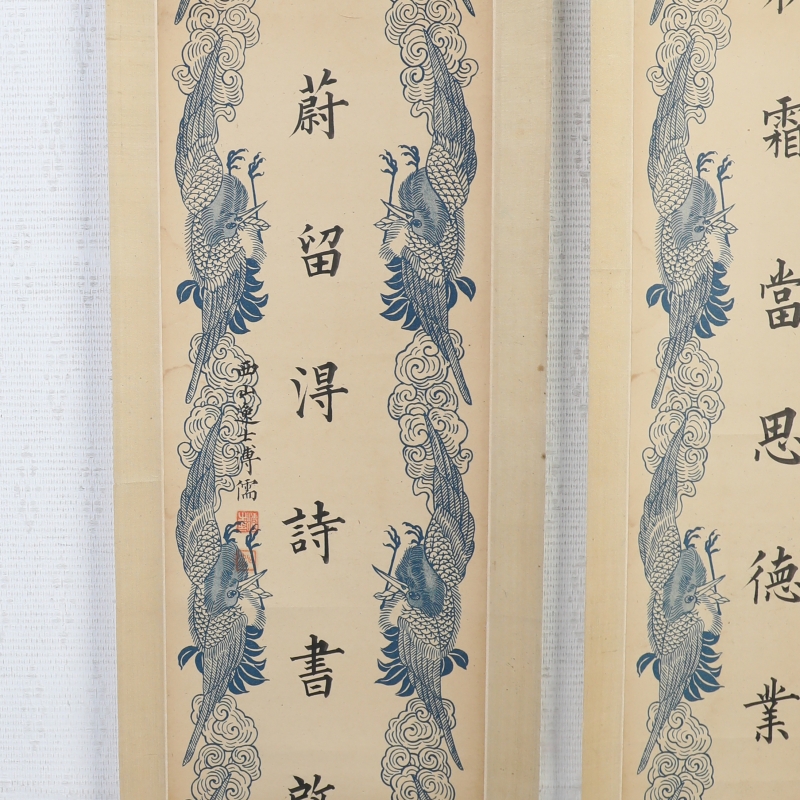 霜當思德業
蔚留淂詩書啟
西山逸士溥儒